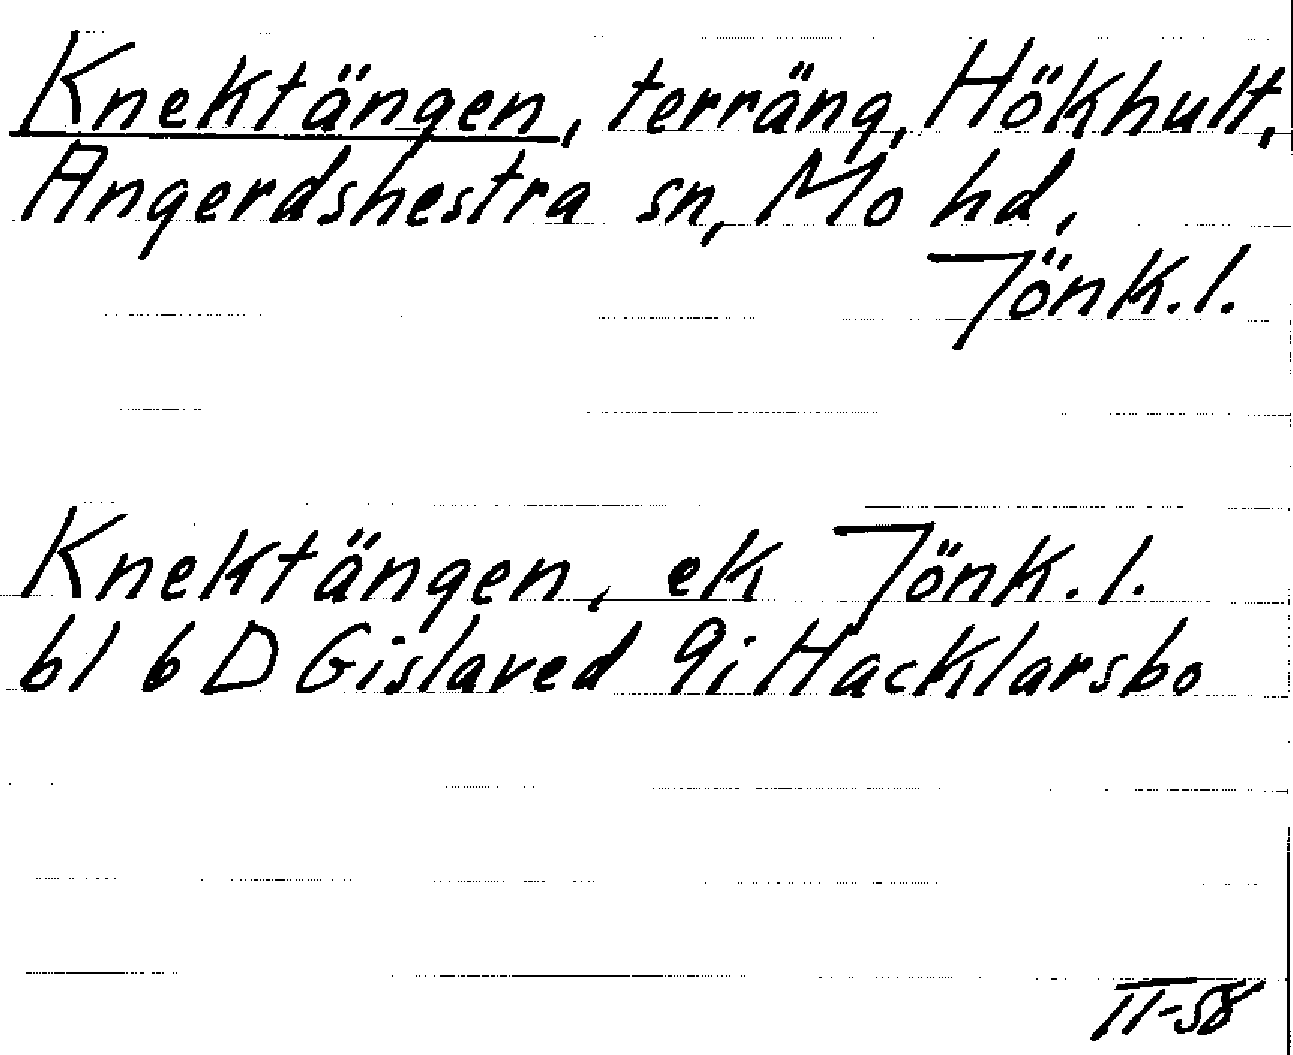 Knektängen, terräng, Hökhult,
Angerdshestra sn, Mo hd,
Jönk.l.
Knektängen, ek Jönk.l.
bl 6 D Gislaved 9i Hacklarsbo
II-58